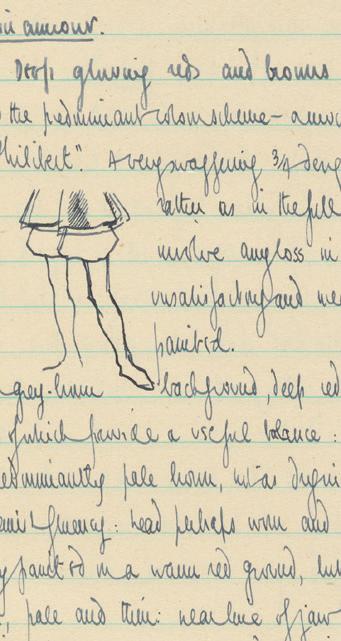 in armour.
Deep glowing reds and browns
the predominant colour scheme - armour
Philibert". A very swaggering 3/4 leng
rather as in the full
involve any loss in
unsatisfactory and
painted.
grey-brown background, deep red
of which provide a useful balance :
predominantly pale brown,
fluency : head perhaps worn and
painted on a warm red ground, but
, pale and thin : near line of jaw